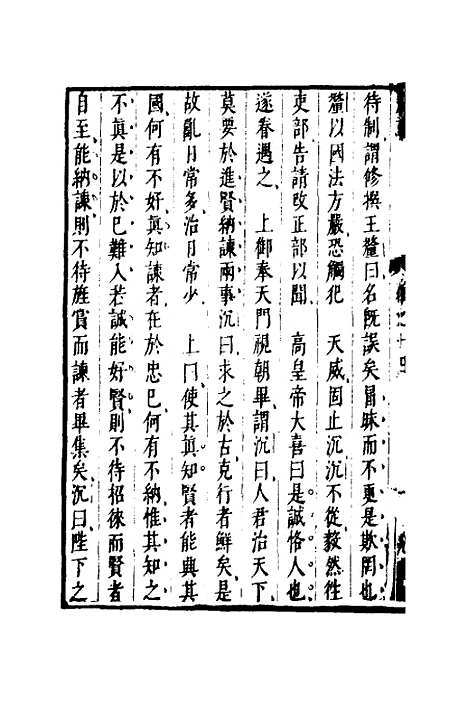 待制謂修撰王釐曰名旣誤矣冒昧而不更是欺罔也
釐以國法方嚴恐觸犯　天威固止沉沉不從毅然徃
吏部告請攺正部以聞　高皇帝大喜曰是誠恪人也
遂眷遇之　上御奉天門視朝畢謂沉曰人君治天下
莫要於進賢納諫兩事沉曰求之於古克行者鮮矣是
故亂日常多治日常少　上曰使其眞知賢者能興其
國何有不好眞知諫者在於忠巳何有不納惟其知之
不眞是以於巳難入若誠能好賢則不待招徠而賢者
自至能納諫則不待旌賞而諫者畢集矣沉曰陛下之